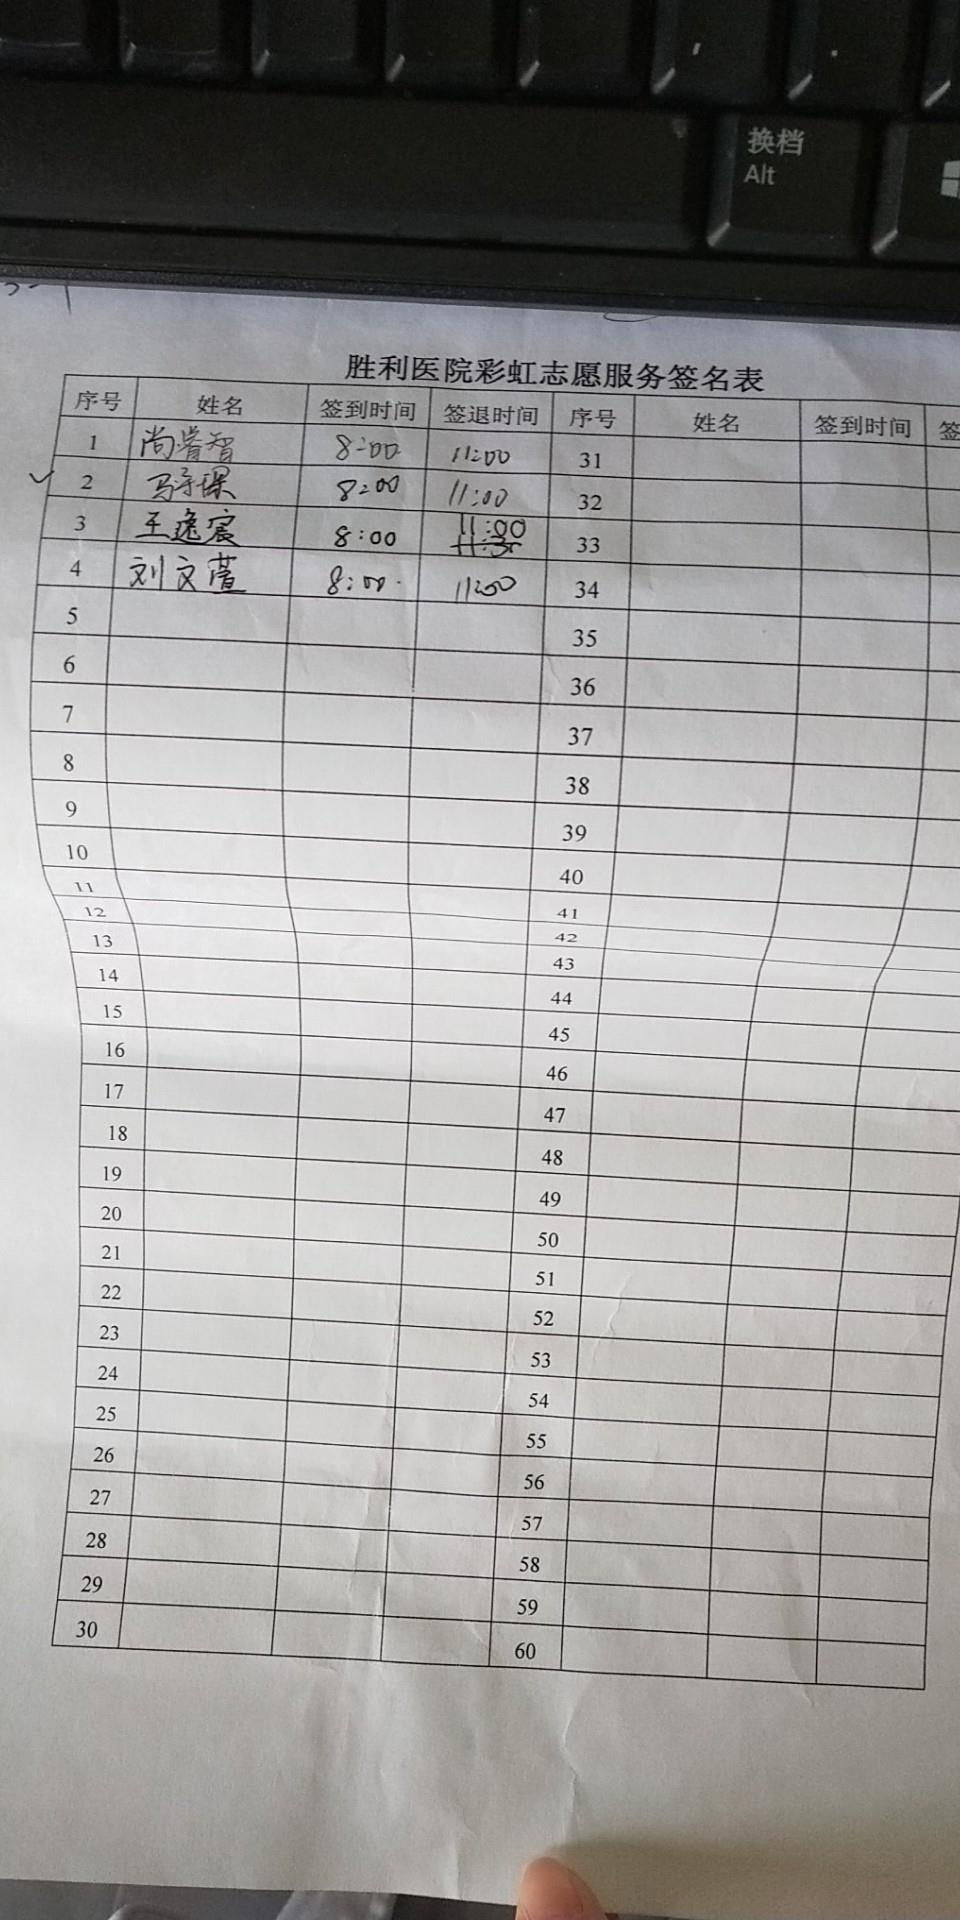 换档
Alt
胜利医院彩虹志愿服务签名表
序号 姓名 签到时间 签退时间 序号 姓名 签到时间 签
1 尚睿智 8:00 11:00 31
2 马子琪 8:00 11:00 32
3 王逸宸 8:00 11:00 11:30 33
4 刘文萱 8:00 11:00 34
5 35
6 36
7 37
8 38
9 39
10 40
11 41
12 42
13 43
14 44
15 45
16 46
17 47
18 48
19 49
20 50
21 51
22 52
23 53
24 54
25 55
26 56
27 57
28 58
29 59
30 60